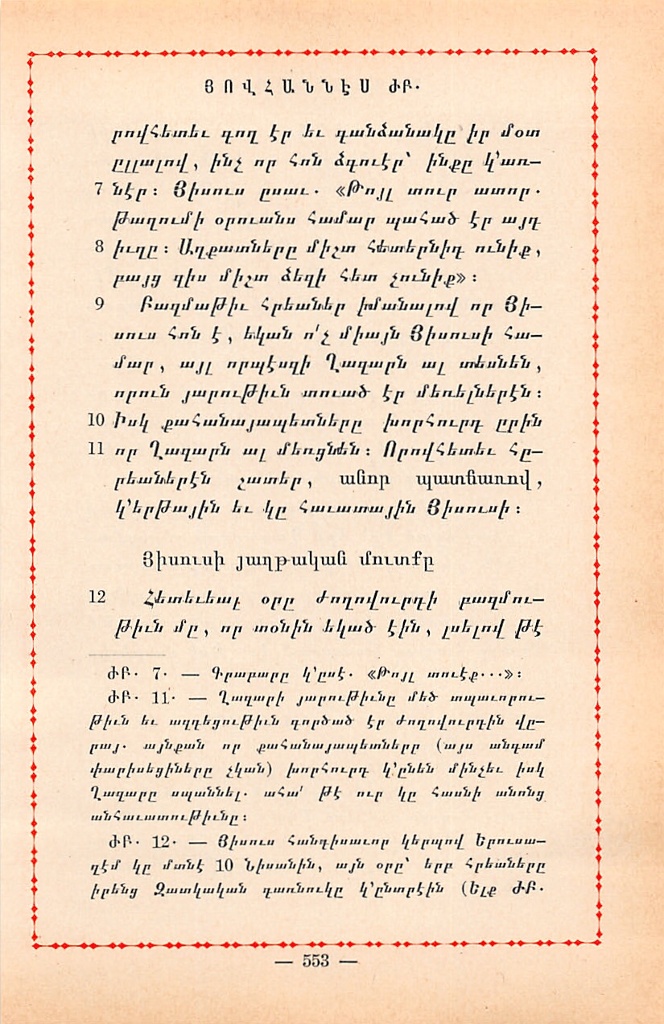 ՅՈՎՀԱՆՆԷՍ ԺԲ․
րովհետեւ գող էր եւ գանձանակը իր մօտ
ըլլալով, ինչ որ հոն ձգուէր՝ ինքը կ՚առ—
7 նէր։ Յիսուս ըսաւ․ «Թոյլ տուր ատոր․
թաղումի օրուանս համար պահած էր այդ
8 իւղը։ Աղքատները միշտ հետերնիդ ունիք,
բայց զիս միշտ ձեզի հետ չունիք»։
9 Բազմաթիւ հրեաներ իմանալով որ Յի—
սուս հոն է, եկան ո՛չ միայն Յիսուսի հա—
մար, այլ որպէսզի Ղազարն ալ տեսնեն,
որուն յարութիւն տուած էր մեռելներէն։
10 Իսկ քահանայապետները խորհուրդ ըրին
11 որ Ղազարն ալ մեռցնեն։ Որովհետեւ հը—
րեաներէն շատեր, անոր պատճառով,
կ՚երթային եւ կը հաւատային Յիսուսի։
Յիսուսի յաղթական մուտքը
12 Հետեւեալ օրը ժողովուրդի բազմու—
թիւն մը, որ տօնին եկած էին, լսելով թէ
ԺԲ․ 7․ — Գրաբարը կ՚ըսէ․ «Թոյլ տուէք․․․»։
ԺԲ․ 11․ — Ղազարի յարութիւնը մեծ տպաւորու—
թիւն եւ ազդեցութիւն գործած էր ժողովուրդին վը—
րայ․ այնքան որ քահանայապետները (այս անգամ
փարիսեցիները չկան) խորհուրդ կ՚ընեն մինչեւ իսկ
Ղազարը սպաննել․ ահա՛ թէ ուր կը հասնի անոնց
անհաւատութիւնը։
ԺԲ․ 12․ — Յիսուս հանդիսաւոր կերպով Երուսա—
ղէմ կը մտնէ 10 Նիսանին, այն օրը՝ երբ հրեաները
իրենց Զատկական գառնուկը կ՚ընտրէին (Ելք ԺԲ․
— 553 —